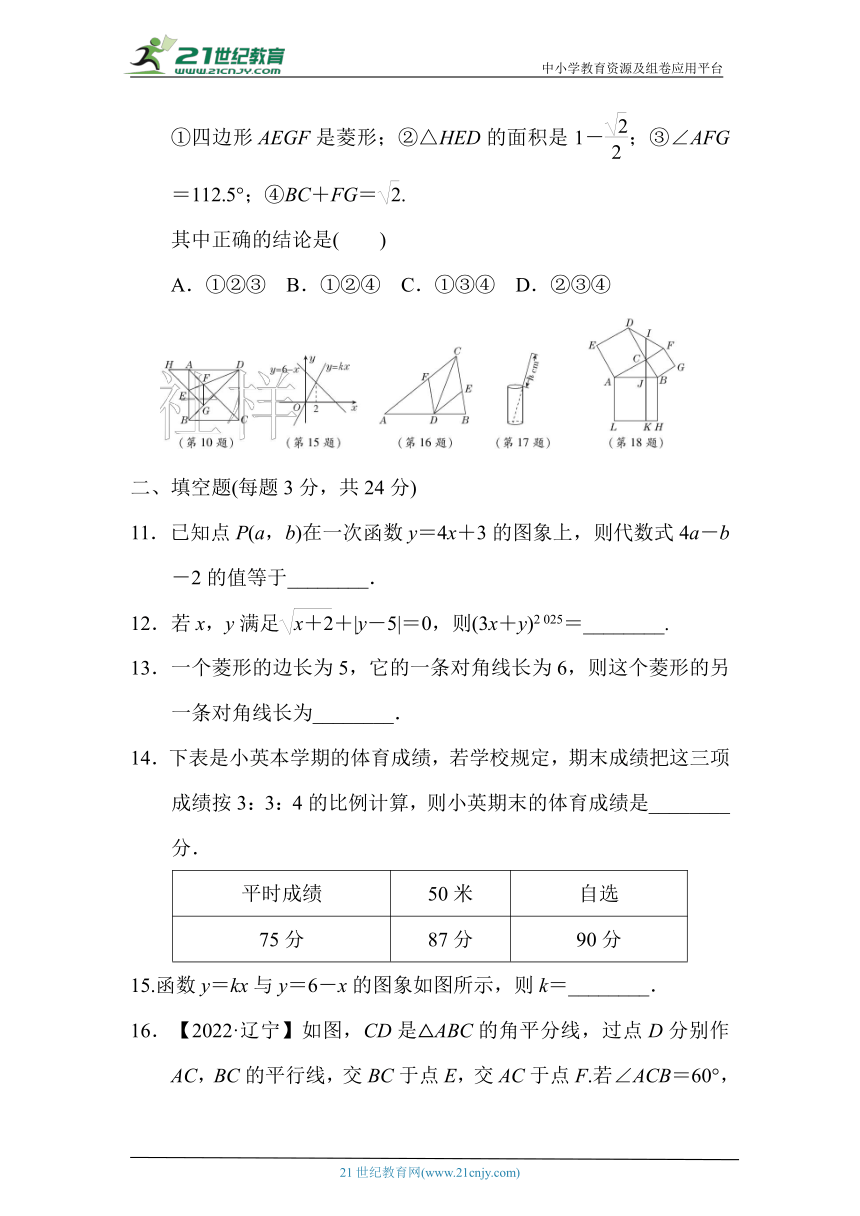 21世纪教育
WWW.21CNJY.COM
中小学教育资源及组卷应用平台
①四边形AEGF是菱形;②△HED的面积是1-√2/2;③∠AFG
=112.5°;④BC+FG=√2.
其中正确的结论是(  )
A.①②③ B.①②④ C.①③④ D.②③④
H A D F E G B C
y=6-x y y=kx O 2 x
C F E A D B
h cm
D I E F C G A J B L K H
(第10题) (第15题) (第16题) (第17题) (第18题)
二、填空题(每题3分,共24分)
11.已知点P(a,b)在一次函数y=4x+3的图象上,则代数式4a-b
-2的值等于________.
12.若x,y满足√(x+2)+|y-5|=0,则(3x+y)^2 025=________.
13.一个菱形的边长为5,它的一条对角线长为6,则这个菱形的另
一条对角线长为________.
14.下表是小英本学期的体育成绩,若学校规定,期末成绩把这三项
成绩按3:3:4的比例计算,则小英期末的体育成绩是________
分.
平时成绩 50米 自选
75分 87分 90分
15.函数y=kx与y=6-x的图象如图所示,则k=________.
16.【2022·辽宁】如图,CD是△ABC的角平分线,过点D分别作
AC,BC的平行线,交BC于点E,交AC于点F.若∠ACB=60°,
21世纪教育网(www.21cnjy.com)